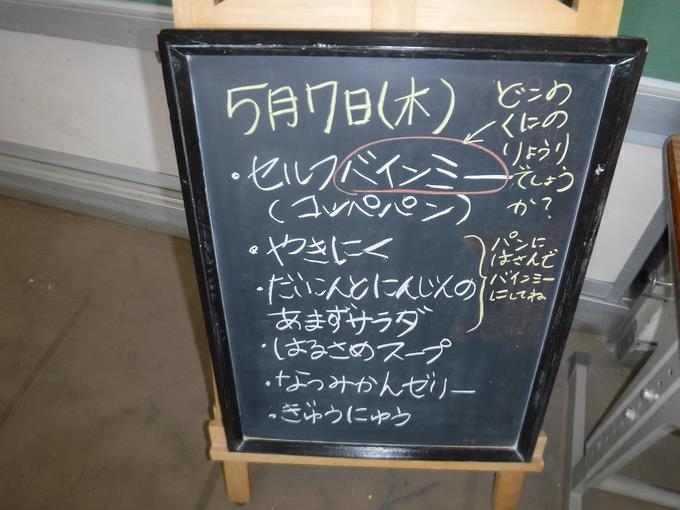 5月7日(木)
・セルフバインミー
(コッペパン)
・やきにく
・だいこんとにんじんの
あまずサラダ
・はるさめスープ
・なつみかんゼリー
・ぎゅうにゅう
どこの
くにの
りょうり
でしょう
か?
パンに
はさんで
バインミー
にしてね